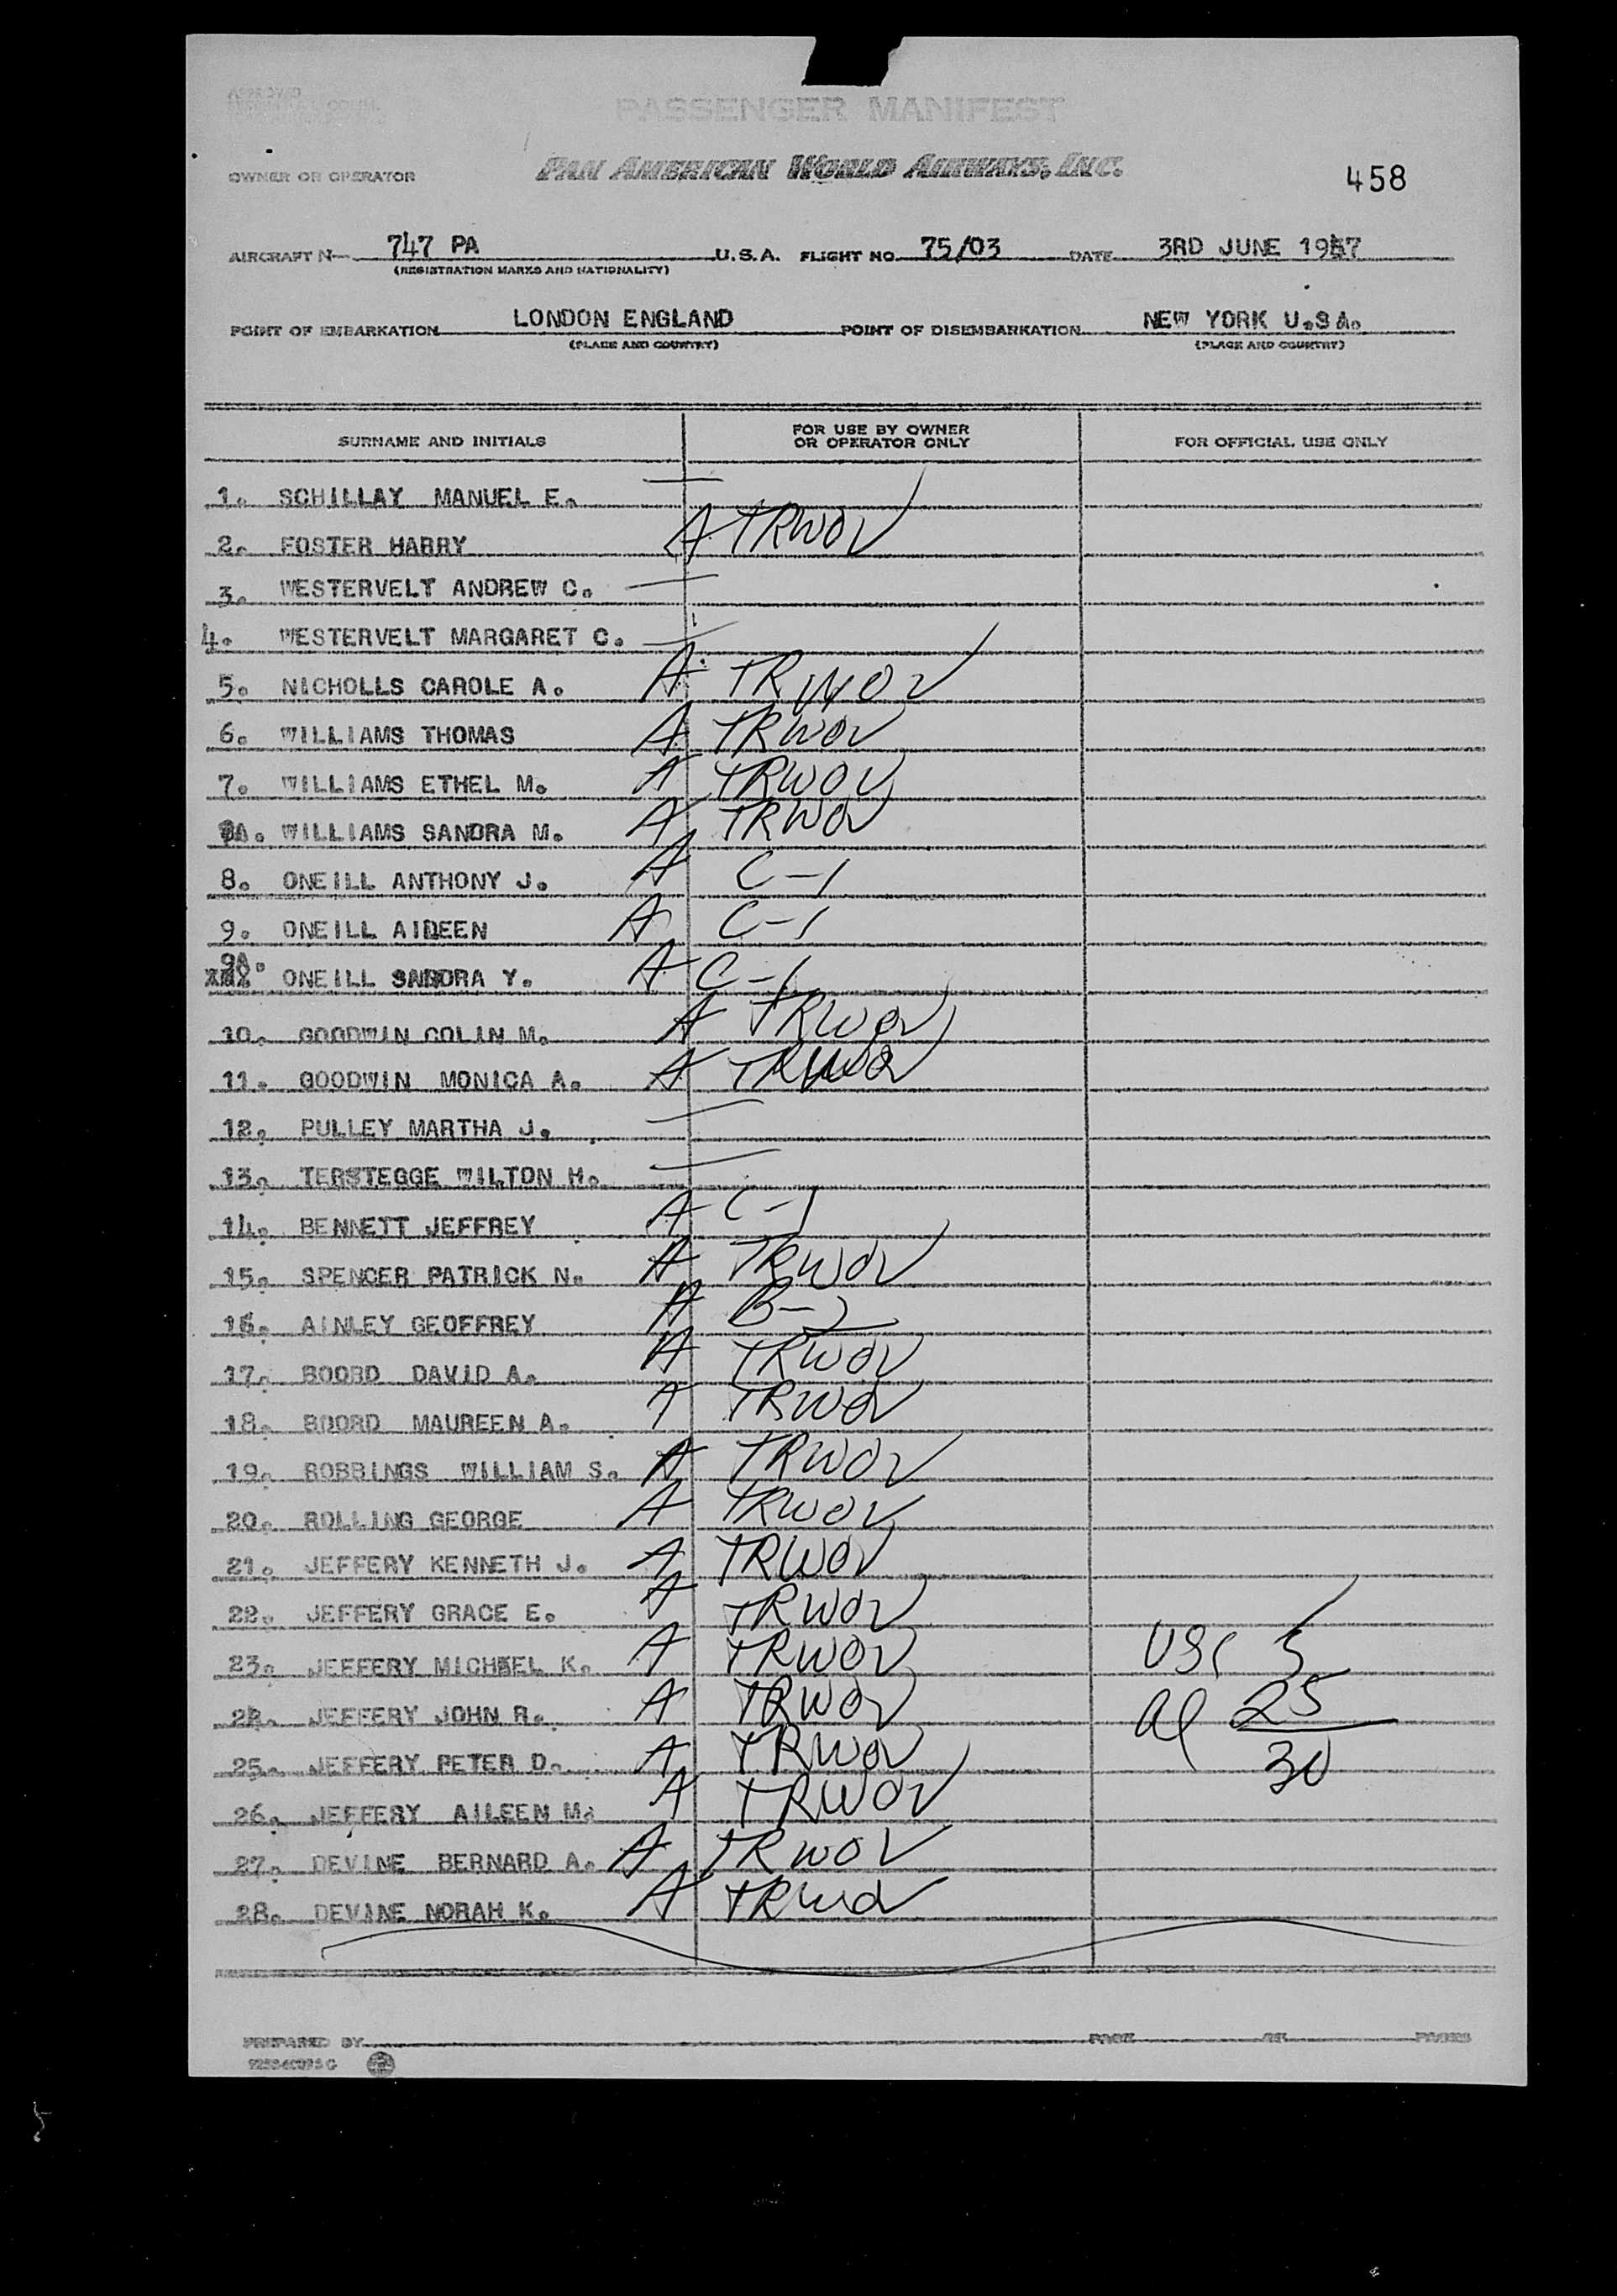 PASSENGER MANIFEST
OWNER OR OPERATOR PAN AMERICAN WORLD AIRWAYS, INC. 458
AIRCRAFT N— 747 PA U.S.A. FLIGHT NO. 75/03 DATE 3RD JUNE 1957
(REGISTRATION MARKS AND NATIONALITY)
POINT OF EMBARKATION LONDON ENGLAND POINT OF DISEMBARKATION NEW YORK U.S.A.
(PLACE AND COUNTRY) (PLACE AND COUNTRY)
SURNAME AND INITIALS FOR USE BY OWNER OR OPERATOR ONLY FOR OFFICIAL USE ONLY
1. SCHILLAY MANUEL E. —
2. FOSTER HARRY A TRWOV
3. WESTERVELT ANDREW C. —
4. WESTERVELT MARGARET C. —
5. NICHOLLS CAROLE A. A TRWOV
6. WILLIAMS THOMAS A TRWOV
7. WILLIAMS ETHEL M. A TRWOV
7A. WILLIAMS SANDRA M. A TRWOV
8. ONEILL ANTHONY J. A C-1
9. ONEILL AIDEEN A C-1
9A. ONEILL SANDRA Y. A C-1
10. GOODWIN COLIN M. A TRWOV
11. GOODWIN MONICA A. A TRWOV
12. PULLEY MARTHA J. —
13. TERSTEGGE WILTON H. —
14. BENNETT JEFFREY A C-1
15. SPENCER PATRICK N. A TRWOV
16. AINLEY GEOFFREY A B-2
17. BOORD DAVID A. A TRWOV
18. BOORD MAUREEN A. A TRWOV
19. ROBBINGS WILLIAM S. A TRWOV
20. ROLLING GEORGE A TRWOV
21. JEFFERY KENNETH J. A TRWOV
22. JEFFERY GRACE E. A TRWOV
23. JEFFERY MICHAEL K. A TRWOV USC 5
24. JEFFERY JOHN R. A TRWOV al 25
25. JEFFERY PETER D. A TRWOV 30
26. JEFFERY AILEEN M. A TRWOV
27. DEVINE BERNARD A. A TRWOV
28. DEVINE NORAH K. A TRWOV
PREPARED BY PAGE OF PAGES